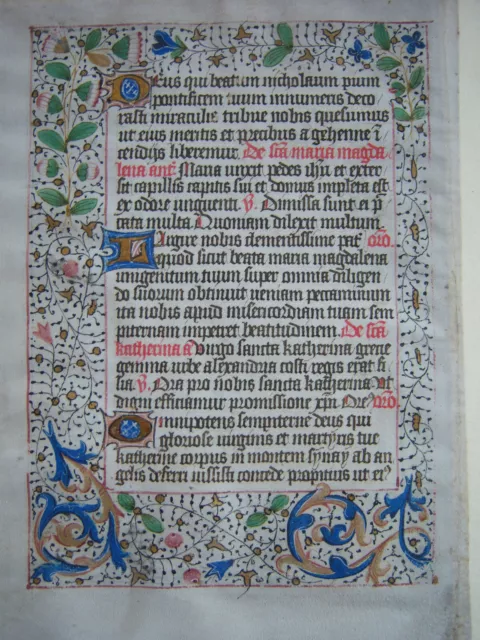 Deus qui beatum nicholaum pium
pontificem tuum innumeris deco
rasti miraculis tribue nobis quesumus
ut eius meritis et precibus a gehenne i
cendijs liberemur. De scā maria magda
lena anť. Maria unxit pedes ihū et exter
sit capillis capitis sui et domus impleta est
ex odore unguenti. V̄. Dimissa sunt ei p̄
cata multa. Quoniam dilexit multum.
Largire nobis clementissime pať orō.
quod sicut beata maria magdalena
unigenitum tuum super omnia diligen
do suorum obtinuit veniam peccaminum
ita nobis apud misericordiam tuam sem
piternam impetret beatitudinem. De scā
katherina a Virgo sancta katherina grecie
gemma urbe alexandria costi regis erat fi
lia. V̄. Ora pro nobis sancta katherina Ut
digni efficiamur promissione xp̄i. Orem9 orō.
Omnipotens sempiterne deus qui
gloriose virginis et martyris tue
katherine corpus in montem synay ab an
gelis deferri iussisti concede propitius ut ei9